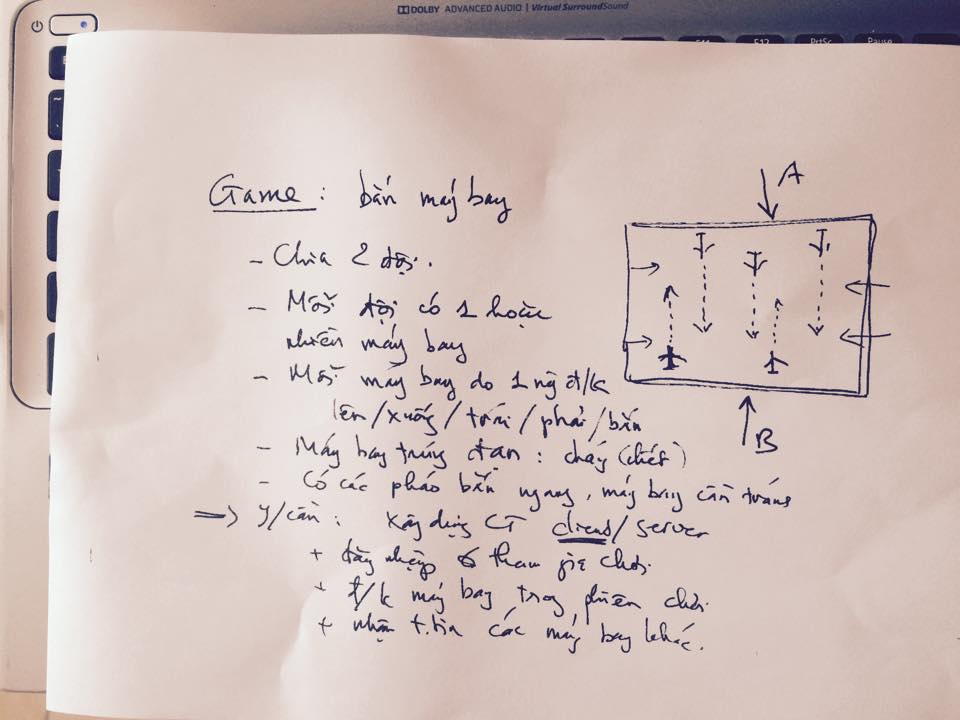 DOLBY ADVANCED AUDIO | Virtual SurroundSound
F11 F12 PrtSc Pause
Game : bắn máy bay
A
- Chia 2 đội.
- Mỗi đội có 1 hoặc
nhiều máy bay
- Mỗi máy bay do 1 ng đ/k
lên/xuống/trái/phải/bắn
B
- Máy bay trúng đạn : cháy (chết)
- Có các pháo bắn ngang, máy bay cần tránh
=> y/cầu : Xây dựng CT client/server
+ đăng nhập để tham gia chơi.
+ đ/k máy bay trong phiên chơi.
+ nhận t.tin các máy bay khác.